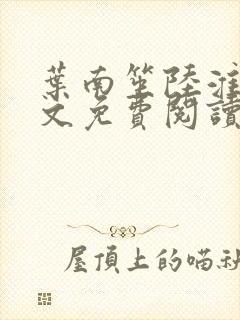 葉南笙陸淮
文免費閱讀
屋頂上的喵